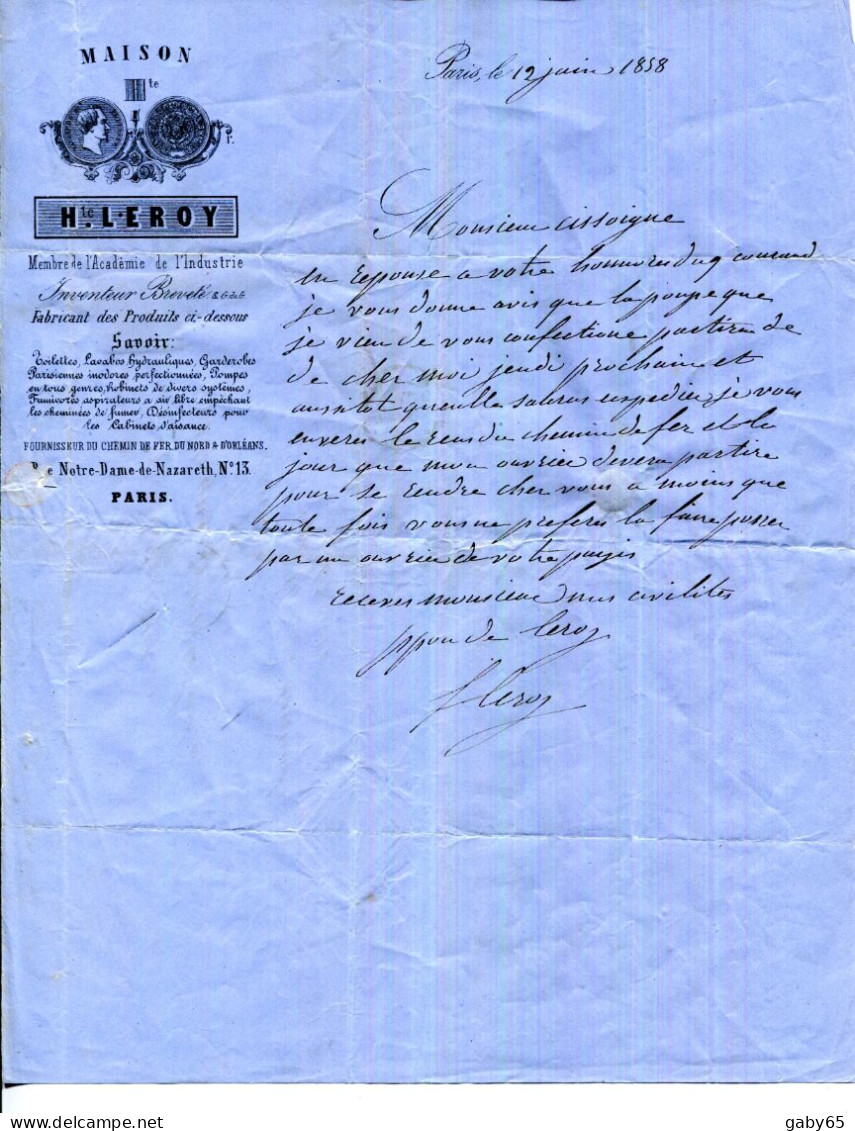 MAISON
H.te L.EROY
Membre de l'Académie de l'Industrie
Inventeur Breveté S.G.d.G
Fabricant des Produits ci-dessous
Savoir:
Toilettes, Lavabos hydrauliques, Garderobes
Parisiennes inodores perfectionnées, Pompes
en tous genres, Robinets de divers systèmes,
Fumivores aspirateurs a air libre empêchant
les cheminées de fumer, Désinfecteurs pour
les Cabinets d'aisance.
FOURNISSEUR DU CHEMIN DE FER DU NORD & D'ORLÉANS.
Rue Notre-Dame-de-Nazareth, N° 13.
PARIS.
Paris, le 12 juin 1858
Monsieur
en reponse a votre honnores du 9 courand
je vous donne avis que la pompe que
je vien de vous confectione partira de
de cher moi jeudi prochain et
aussitot quenlle sauras expedier je vous
enveres le resu du chemin de fer et la
jour que mon ouvrier devera partire
pour se rendre cher vous a moins que
toute fois vous ne preferes la faire poser
par un ouvrier de votre payis
receves monsieur mes civilites
ppon de leroy
leroy
gaby65